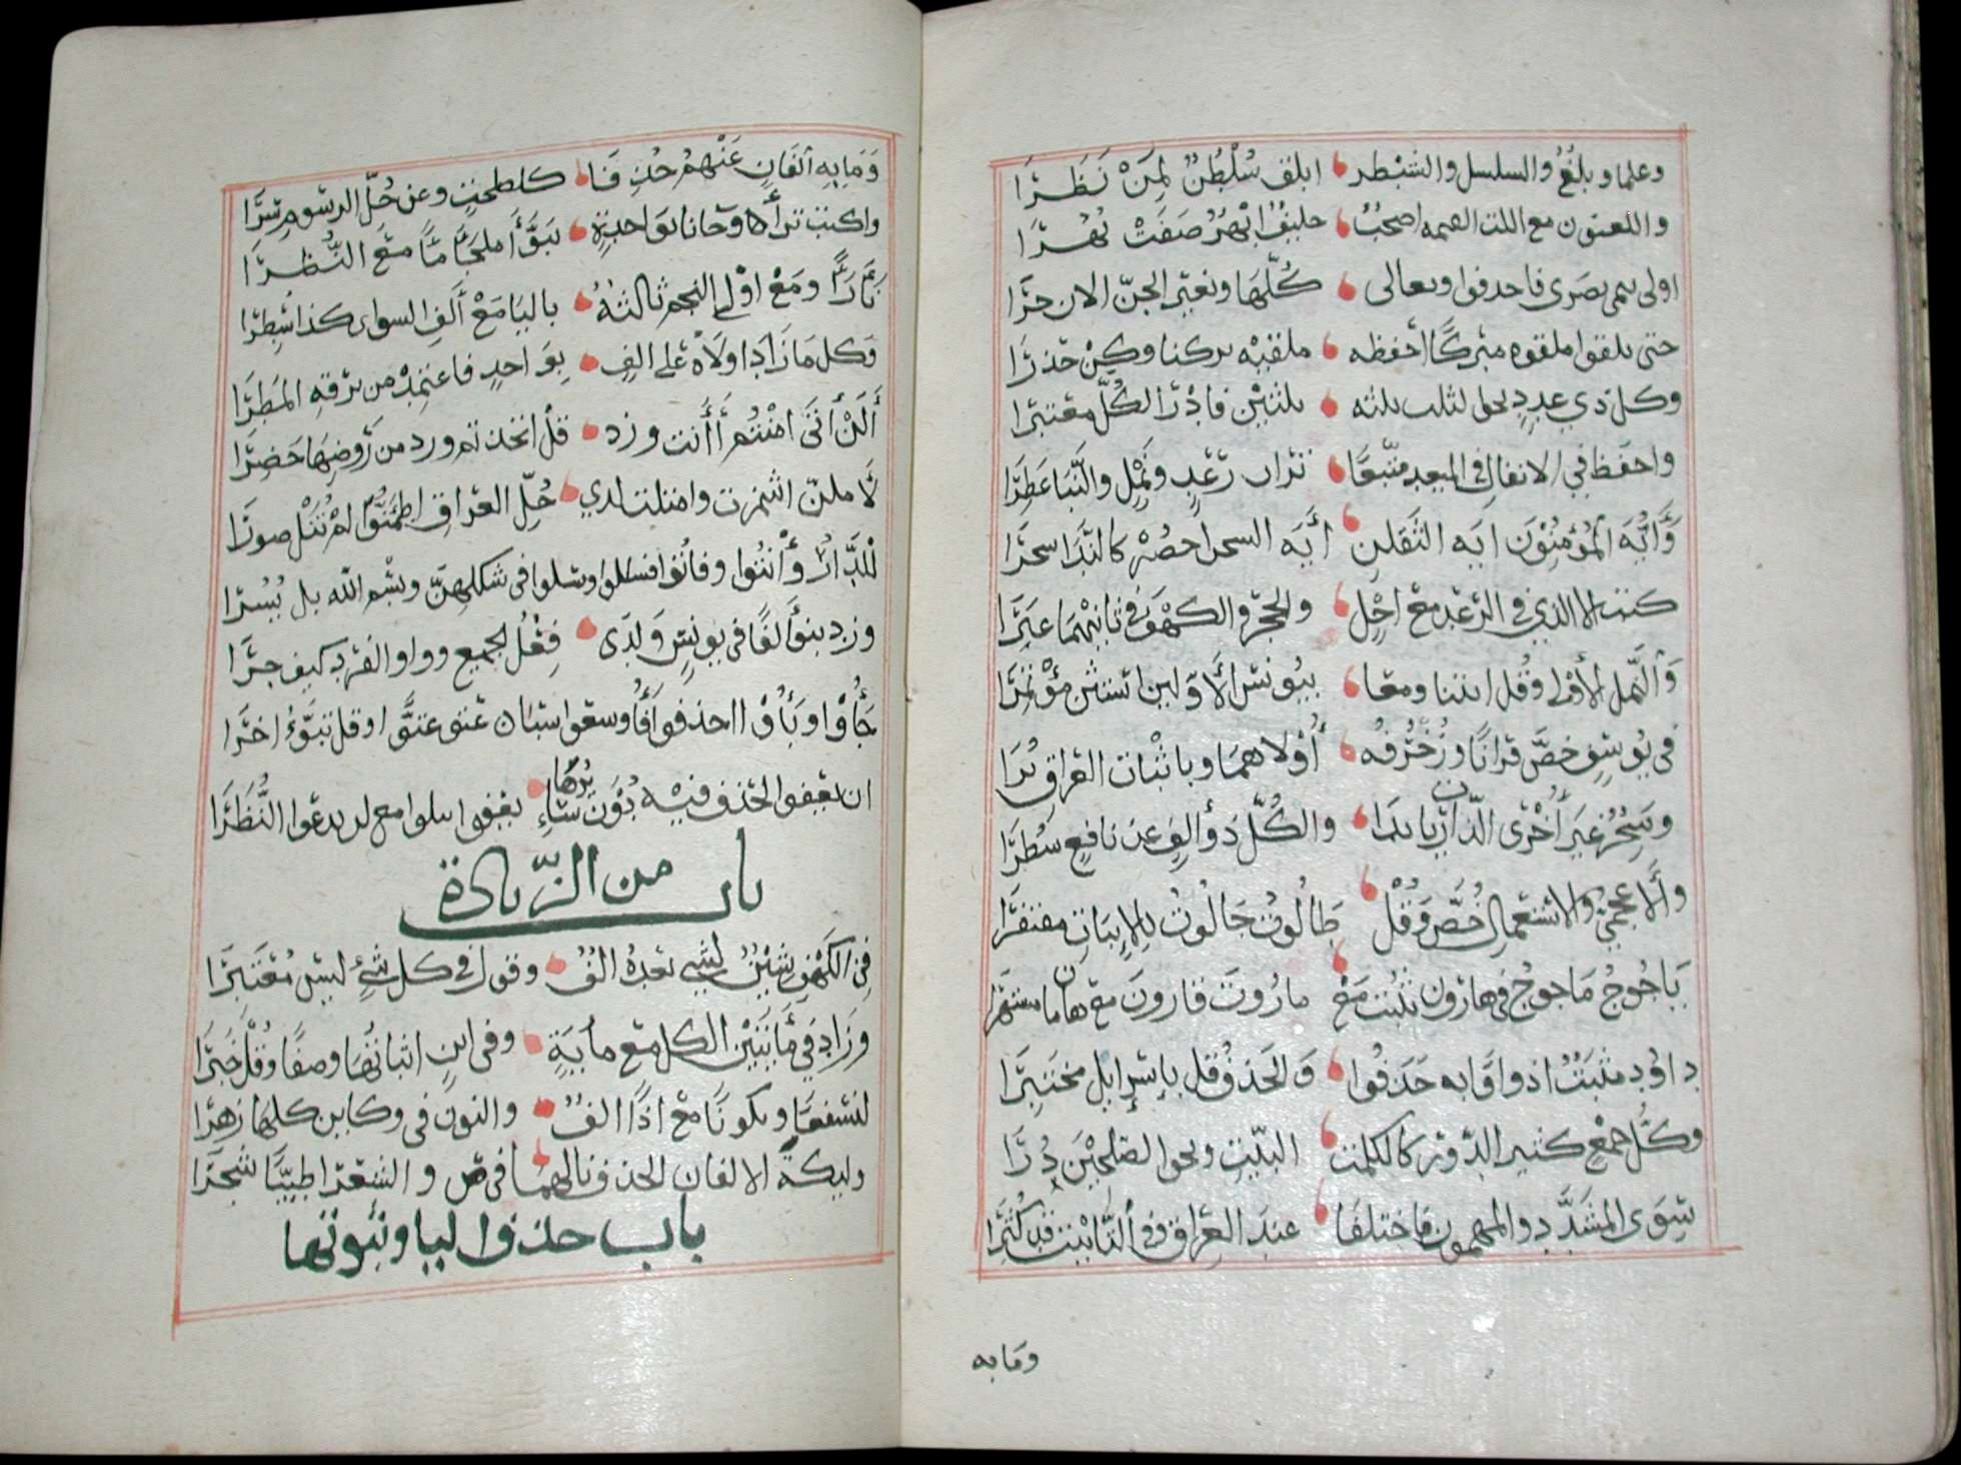 وعلما وبلغ والسلسل والشيطر ابلغ سلطن لمن نظرا
واللعنون مع اللت القيمه اصحب خليف انهر صفت نهرا
اولى يتمى نصرى فاحدفوا وتعالى كلها وبغير الجن الان جرا
حتى يلقوا ملقوه مبركا احفظه ملقيه بركنا وكن حذرا
وكل ذي عدد نحو لثلث ثلثه ثلثين فادر الكل معتبرا
واحفظ في الانفال في الميعد متبعا تراب رعد ونمل والنبا عطرا
وأيه المؤمنون ايه الثقلن أيه السحر احضر كالندا سحرا
كتب الا الذي في الرعد مع اجل والحجر والكهف في ثانيهما غبرا
والنمل الأولى وقل ايتنا ومعا بيونس الأولين استثن مؤتمرا
في يوسف خص قرانا وزخرفه أولاهما وباثبات العراق يرا
وسحر غير أخرى الذاريات بدا والكل ذو ألف عن نافع سطرا
والاعجمي ذو الاستعمال خص وقل طالوت جالوت بالاثبات مغتفرا
ياجوج ماجوج في هاروت تثبت مع ماروت قارون مع هامان مشتهرا
داود مثبت اذ واو به حذفوا والحذف قل باسرايل مختبرا
وكل جمع كثير الدور كالكلمت البينت ونحو الصلحين درا
سوى المشدد والمهموز فاختلفا عند العراق وفي التانيث قد كثرا
ومابه
ومابه الفان عنهم حذفا كالصلحت وعن جل الرسوم سرا
واكتب ترأا وجاانا بواحدة تبوأا ملجأا ماا مع النظرا
نأى رأا ومع اولى النجم ثالثه باليا مع ألف السواى كذا سطرا
وكل ما زاد اولاه على الف بواحد فاعتمد من برقه المطرا
ألن أتى امنتم أأنت وزد قل اتخذتم ورد من روضها خضرا
لأملن اشمزت وامتلت لدى جل العراق اطمنوا لم تنل صورا
للدار وأتوا وفاتوا فسلوا وسلوا في شكلهن وبسم الله نل يسرا
وزد بنوا ألفا في يونس ولدى فعل الجميع وواو الفرد كيف جرا
جاو وباو احذفوا فاو سعو بسبا عتو عتوا وقل تبوؤ اخرا
ان يعفو الحذف فيه دون سائرها يعفوا ويبلوا مع لن ندعوا النظرا
باب من الزيادة
في الكهف شين لشيء بعده الف وقول في كل شيء ليس معتبرا
وزاد في مأئتين الكل مع مأية وفي ابن اثباتها وصفا وقل خبرا
لنسفعا وليكونا مع اذا الف والنون في وكاين كلها زهرا
وليكة الالفان الحذف نالهما في ص والشعرا طيبا شجرا
باب حذف اليا وثبوتها